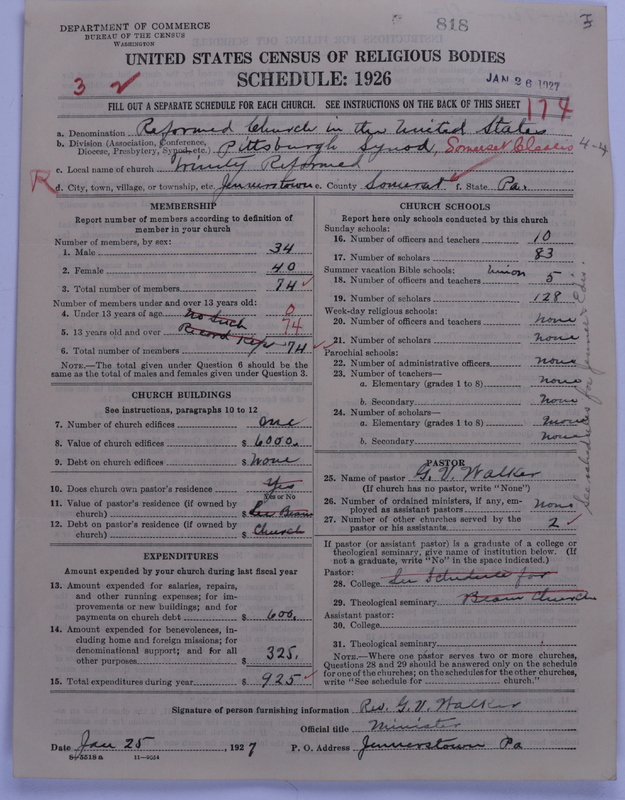 DEPARTMENT OF COMMERCE
BUREAU OF THE CENSUS
WASHINGTON
818
UNITED STATES CENSUS OF RELIGIOUS BODIES
SCHEDULE: 1926
JAN 26 1927
3
FILL OUT A SEPARATE SCHEDULE FOR EACH CHURCH. SEE INSTRUCTIONS ON THE BACK OF THIS SHEET
174
a. Denomination Reformed Church in the United States
b. Division (Association, Conference, Diocese, Presbytery, Synod, etc.) Pittsburgh Synod, Somerset Classis 4-4
c. Local name of church Trinity Reformed
R d. City, town, village, or township, etc. Jennerstown e. County Somerset f. State Pa.
MEMBERSHIP
Report number of members according to definition of
member in your church
Number of members, by sex:
1. Male 34
2. Female 40
3. Total number of members 74
Number of members under and over 13 years old:
4. Under 13 years of age No Such 0
5. 13 years old and over Record Kept 74
6. Total number of members 74
NOTE.—The total given under Question 6 should be the
same as the total of males and females given under Question 3.
CHURCH BUILDINGS
See instructions, paragraphs 10 to 12
7. Number of church edifices one
8. Value of church edifices $ 6000.
9. Debt on church edifices $ None
10. Does church own pastor's residence Yes
Yes or No
11. Value of pastor's residence (if owned by
church) $ See Beam
12. Debt on pastor's residence (if owned by
church) $ Church
EXPENDITURES
Amount expended by your church during last fiscal year
13. Amount expended for salaries, repairs,
and other running expenses; for im-
provements or new buildings; and for
payments on church debt $ 600.
14. Amount expended for benevolences, in-
cluding home and foreign missions; for
denominational support; and for all
other purposes $ 325.
15. Total expenditures during year $ 925
CHURCH SCHOOLS
Report here only schools conducted by this church
Sunday schools:
16. Number of officers and teachers 10
17. Number of scholars 83
Summer vacation Bible schools: Union
18. Number of officers and teachers 5
19. Number of scholars 128
Week-day religious schools:
20. Number of officers and teachers none
21. Number of scholars none
Parochial schools:
22. Number of administrative officers none
23. Number of teachers—
a. Elementary (grades 1 to 8) none
b. Secondary none
24. Number of scholars—
a. Elementary (grades 1 to 8) none
b. Secondary none
PASTOR
25. Name of pastor G. V. Walker
(If church has no pastor, write "None")
26. Number of ordained ministers, if any, em-
ployed as assistant pastors None
27. Number of other churches served by the
pastor or his assistants 2
If pastor (or assistant pastor) is a graduate of a college or
theological seminary, give name of institution below. (If
not a graduate, write "No" in the space indicated.)
Pastor:
28. College See Schedule for
29. Theological seminary Beam Church
Assistant pastor:
30. College
31. Theological seminary
NOTE.—Where one pastor serves two or more churches,
Questions 28 and 29 should be answered only on the schedule
for one of the churches; on the schedules for the other churches,
write "See schedule for church."
Signature of person furnishing information Rev. G. V. Walker
Official title Minister
Date Jan 25 1927 P. O. Address Jennerstown Pa
11—9024